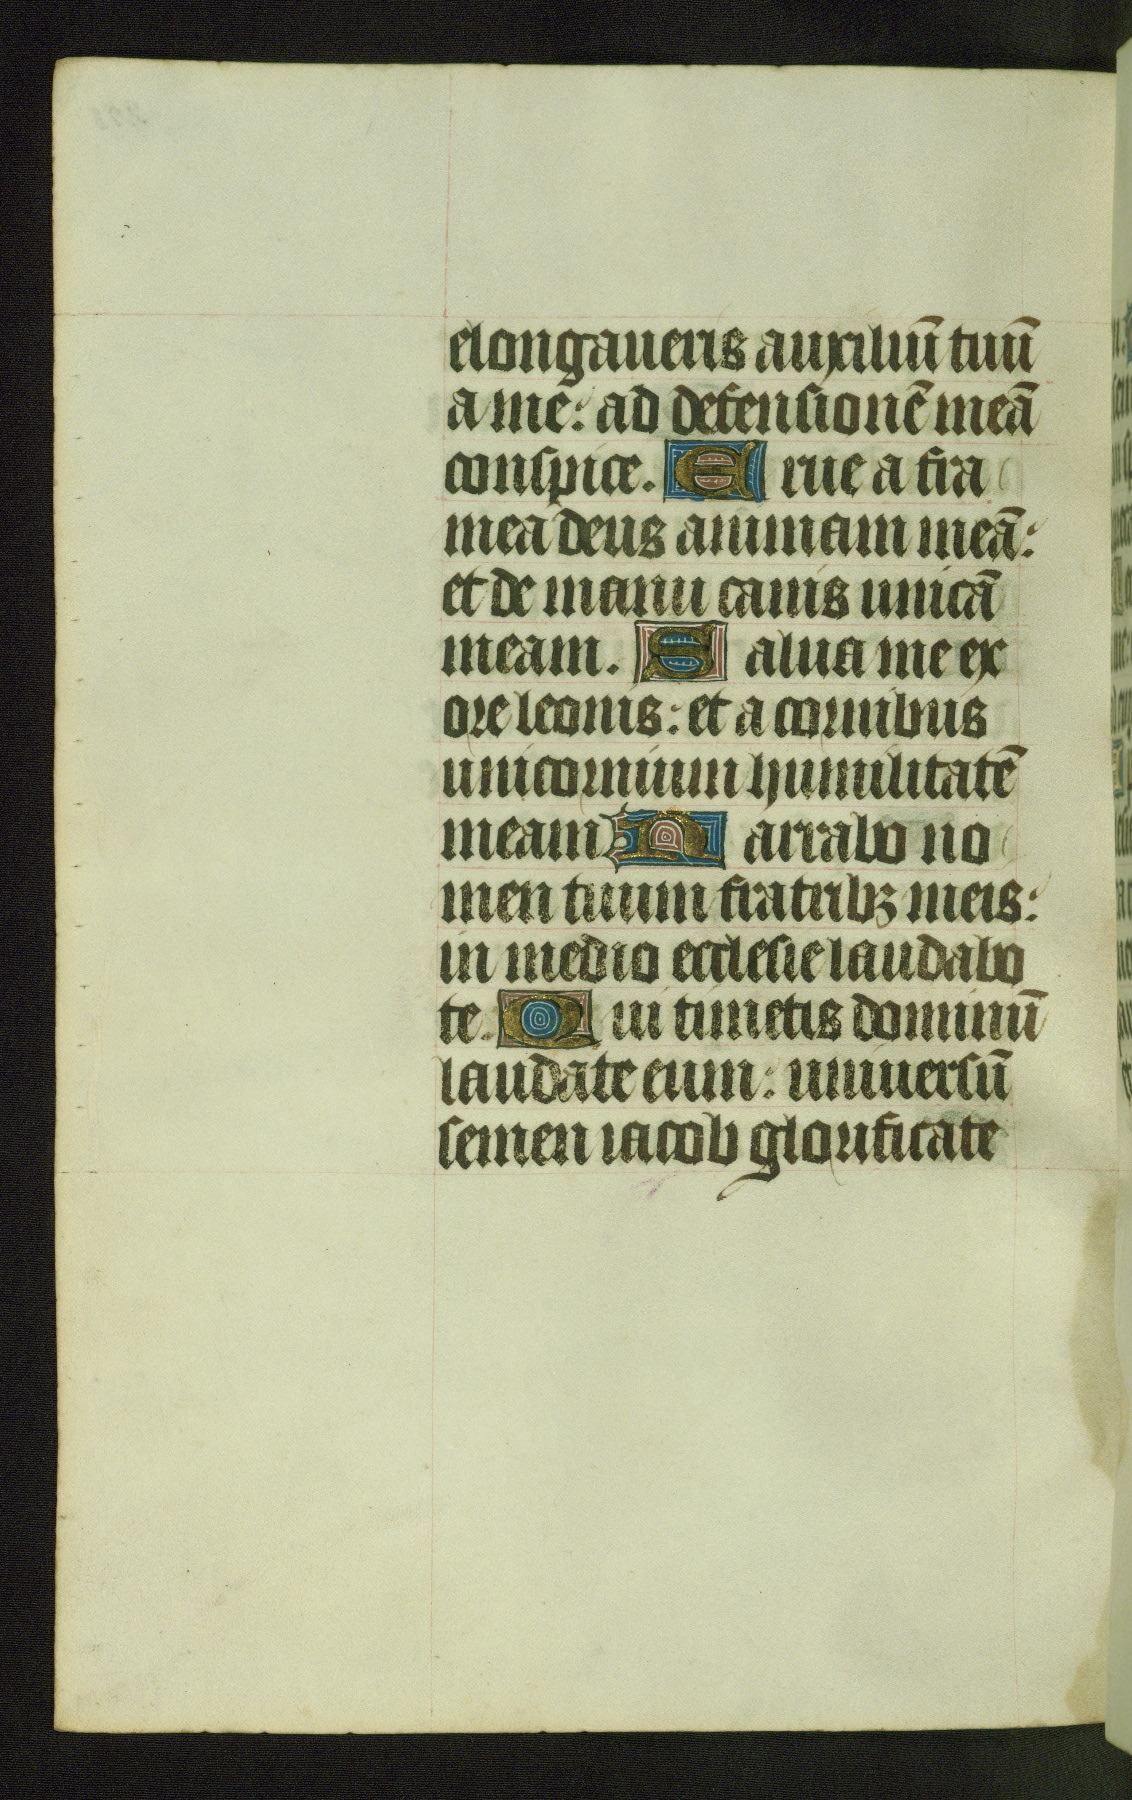 elongaueris auxiliū tuū
a me: ad defensionē meā
conspice. Erue a fra
mea deus animam meā:
et de manu canis unicā
meam. Salua me ex
ore leonis: et a cornibus
unicornium humilitatē
meam Narrabo no
men tuum fratribꝫ meis:
in medio ecclesie laudabo
te. Qui timetis dominū
laudate eum: uniuersū
semen iacob glorificate